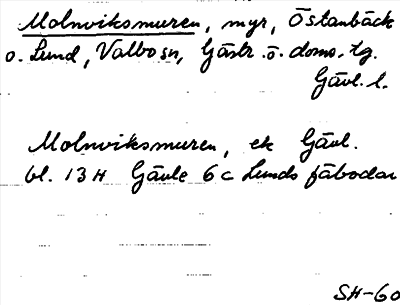 Molnviksmuren, myr, Östanbäck
o. Lund, Valbo sn, Gästr. ö. doms. tg.
Gävl. l.
Molnviksmuren, ek Gävl.
bl. 13 H Gävle 6 c Lunds fäbodar
SH-60